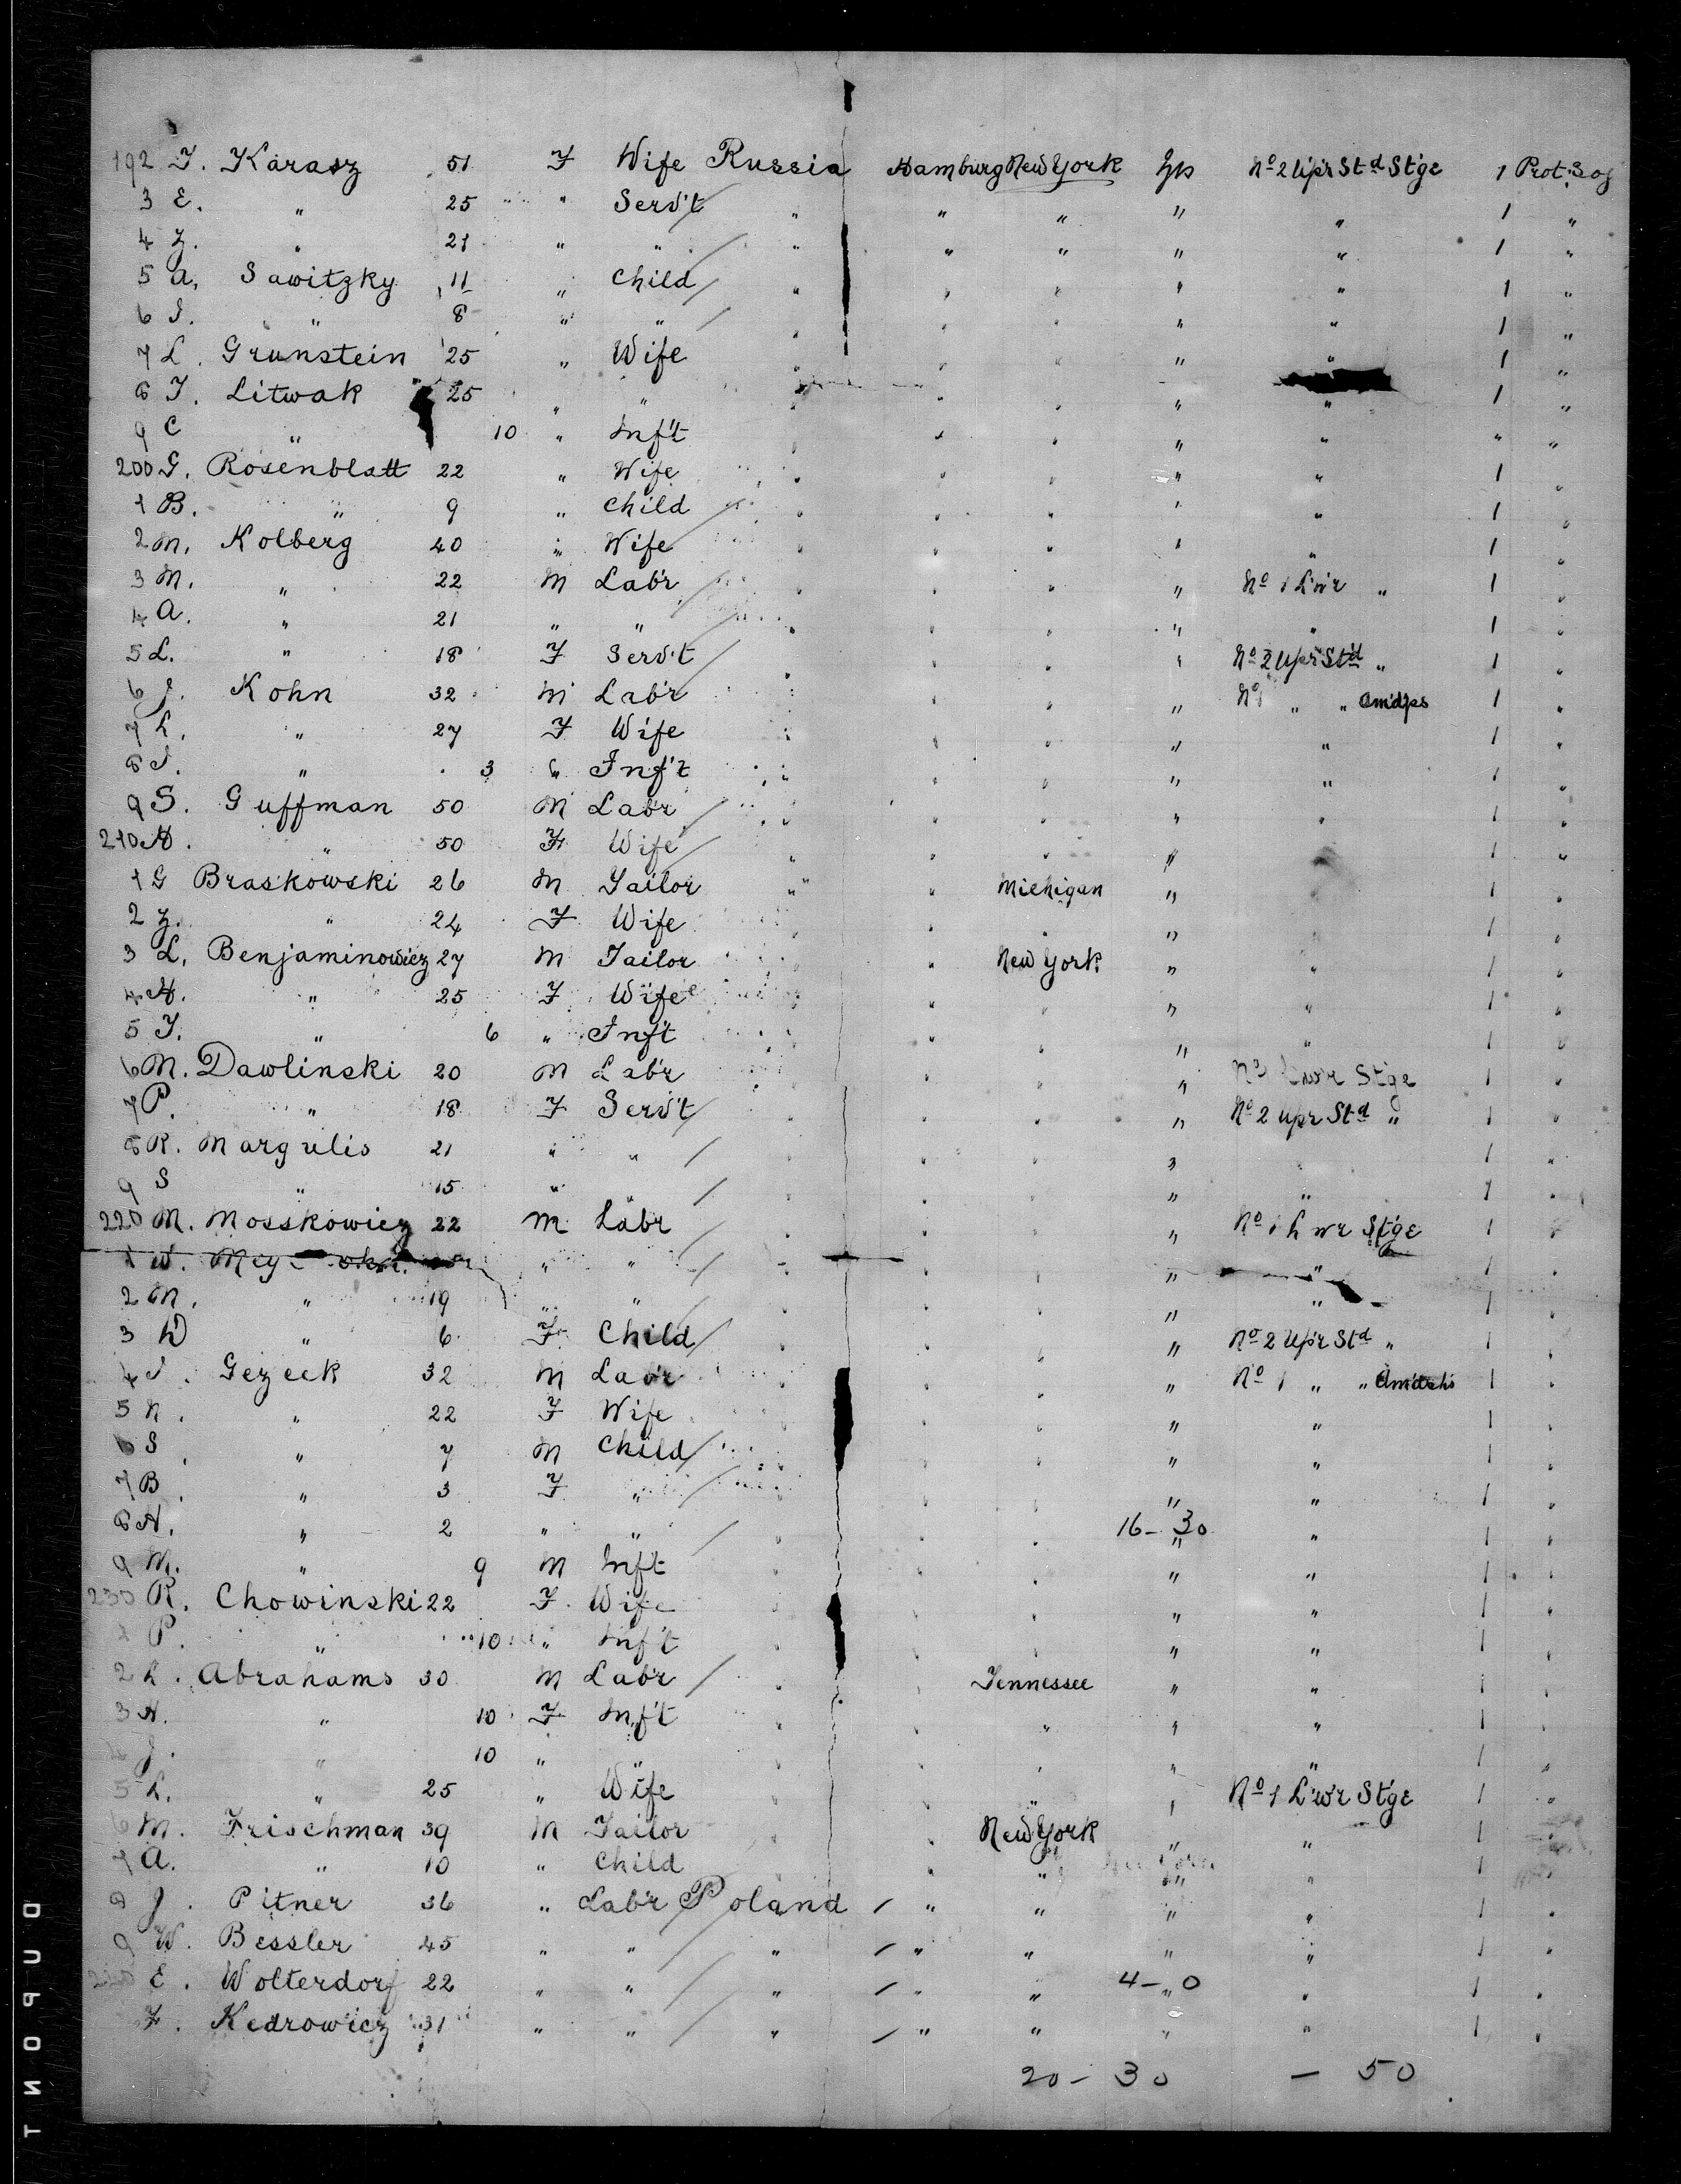 192 I. Karasz 51 F Wife Russia Hamburg New York No 2 Up'r Std St'ge 1 Prot:
3 E. " 25 " Serv't " " " " " 1 "
4 Z. " 21 " " " " " " " 1 "
5 A. Sawitzky 11 " Child " " " " " 1 "
6 I. " 8 " " " " " " " 1 "
7 L. Grunstein 25 " Wife " " " " " 1 "
8 I. Litwak 25 " " " " " " " 1 "
9 C " 10 " Inf't " " " " " " "
200 G. Rosenblatt 22 " Wife " " " " " 1 "
1 B. " 9 " Child " " " " " 1 "
2 M. Kolberg 40 " Wife " " " " " 1 "
3 M. " 22 M Lab'r " " " " No 1 L'w'r " 1 "
4 A. " 21 " " " " " " " 1 "
5 L. " 18 F Serv't " " " " No 2 Up'r Std " 1 "
6 J. Kohn 32 M Lab'r " " " " No 1 " " Am'dps 1 "
7 L. " 27 F Wife " " " " " 1 "
8 I. " 3 " Inf't " " " " " 1 "
9 S. Guffman 50 M Lab'r " " " " " 1 "
210 H. " 50 F Wife " " " " " 1 "
1 G Braskowski 26 M Tailor " " Michigan " " 1 "
2 Z. " 24 F Wife " " " " " 1 "
3 L. Benjaminowicz 27 M Tailor " " New York " " 1 "
4 H. " 25 F Wife " " " " " 1 "
5 I. " 6 " Inf't " " " " " 1 "
6 M. Dawlinski 20 M Lab'r " " " " Lw'r St'ge 1 "
7 P. " 18 F Serv't " " " " No 2 Up'r Std " 1 "
8 R. Margulis 21 " " " " " " " 1 "
9 S " 15 " " " " " " " 1 "
220 M. Mosskowicz 22 M Lab'r " " " " No 1 L'wr St'ge 1 "
1 W. " " " " " " " 1 "
2 M. " 19 " " " " " " " 1 "
3 D " 6 F Child " " " " No 2 Up'r Std " 1 "
4 I. Gezeck 32 M Lab'r " " " " No 1 " " 1 "
5 N. " 22 F Wife " " " " " 1 "
6 S. " 7 M Child " " " " " 1 "
7 B. " 3 F " " " " " " 1 "
8 H. " 2 " " " " " 16-30 " " 1 "
9 M. " 9 M Inf't " " " " " 1 "
230 R. Chowinski 22 F. Wife " " " " " 1 "
1 P. " 10 " Inf't " " " " " 1 "
2 L. Abrahams 30 M Lab'r " " Tennessee " " 1 "
3 H. " 10 F Inf't " " " " " 1 "
4 J. " 10 " " " " " " " 1 "
5 L. " 25 " Wife " " " " No 1 L'w'r St'ge 1 "
6 M. Frischman 39 M Tailor " " New York " " 1 "
7 A. " 10 " Child " " " " " 1 "
8 J. Pitner 36 " Lab'r Poland " " " " 1 "
9 W. Bessler 45 " " " " " " " 1 "
E. Wolterdorf 22 " " " " " 4-0 " " 1 "
F. Kedrowicz 31 " " " " " " " 1 "
20-30 - 50
DUPONT